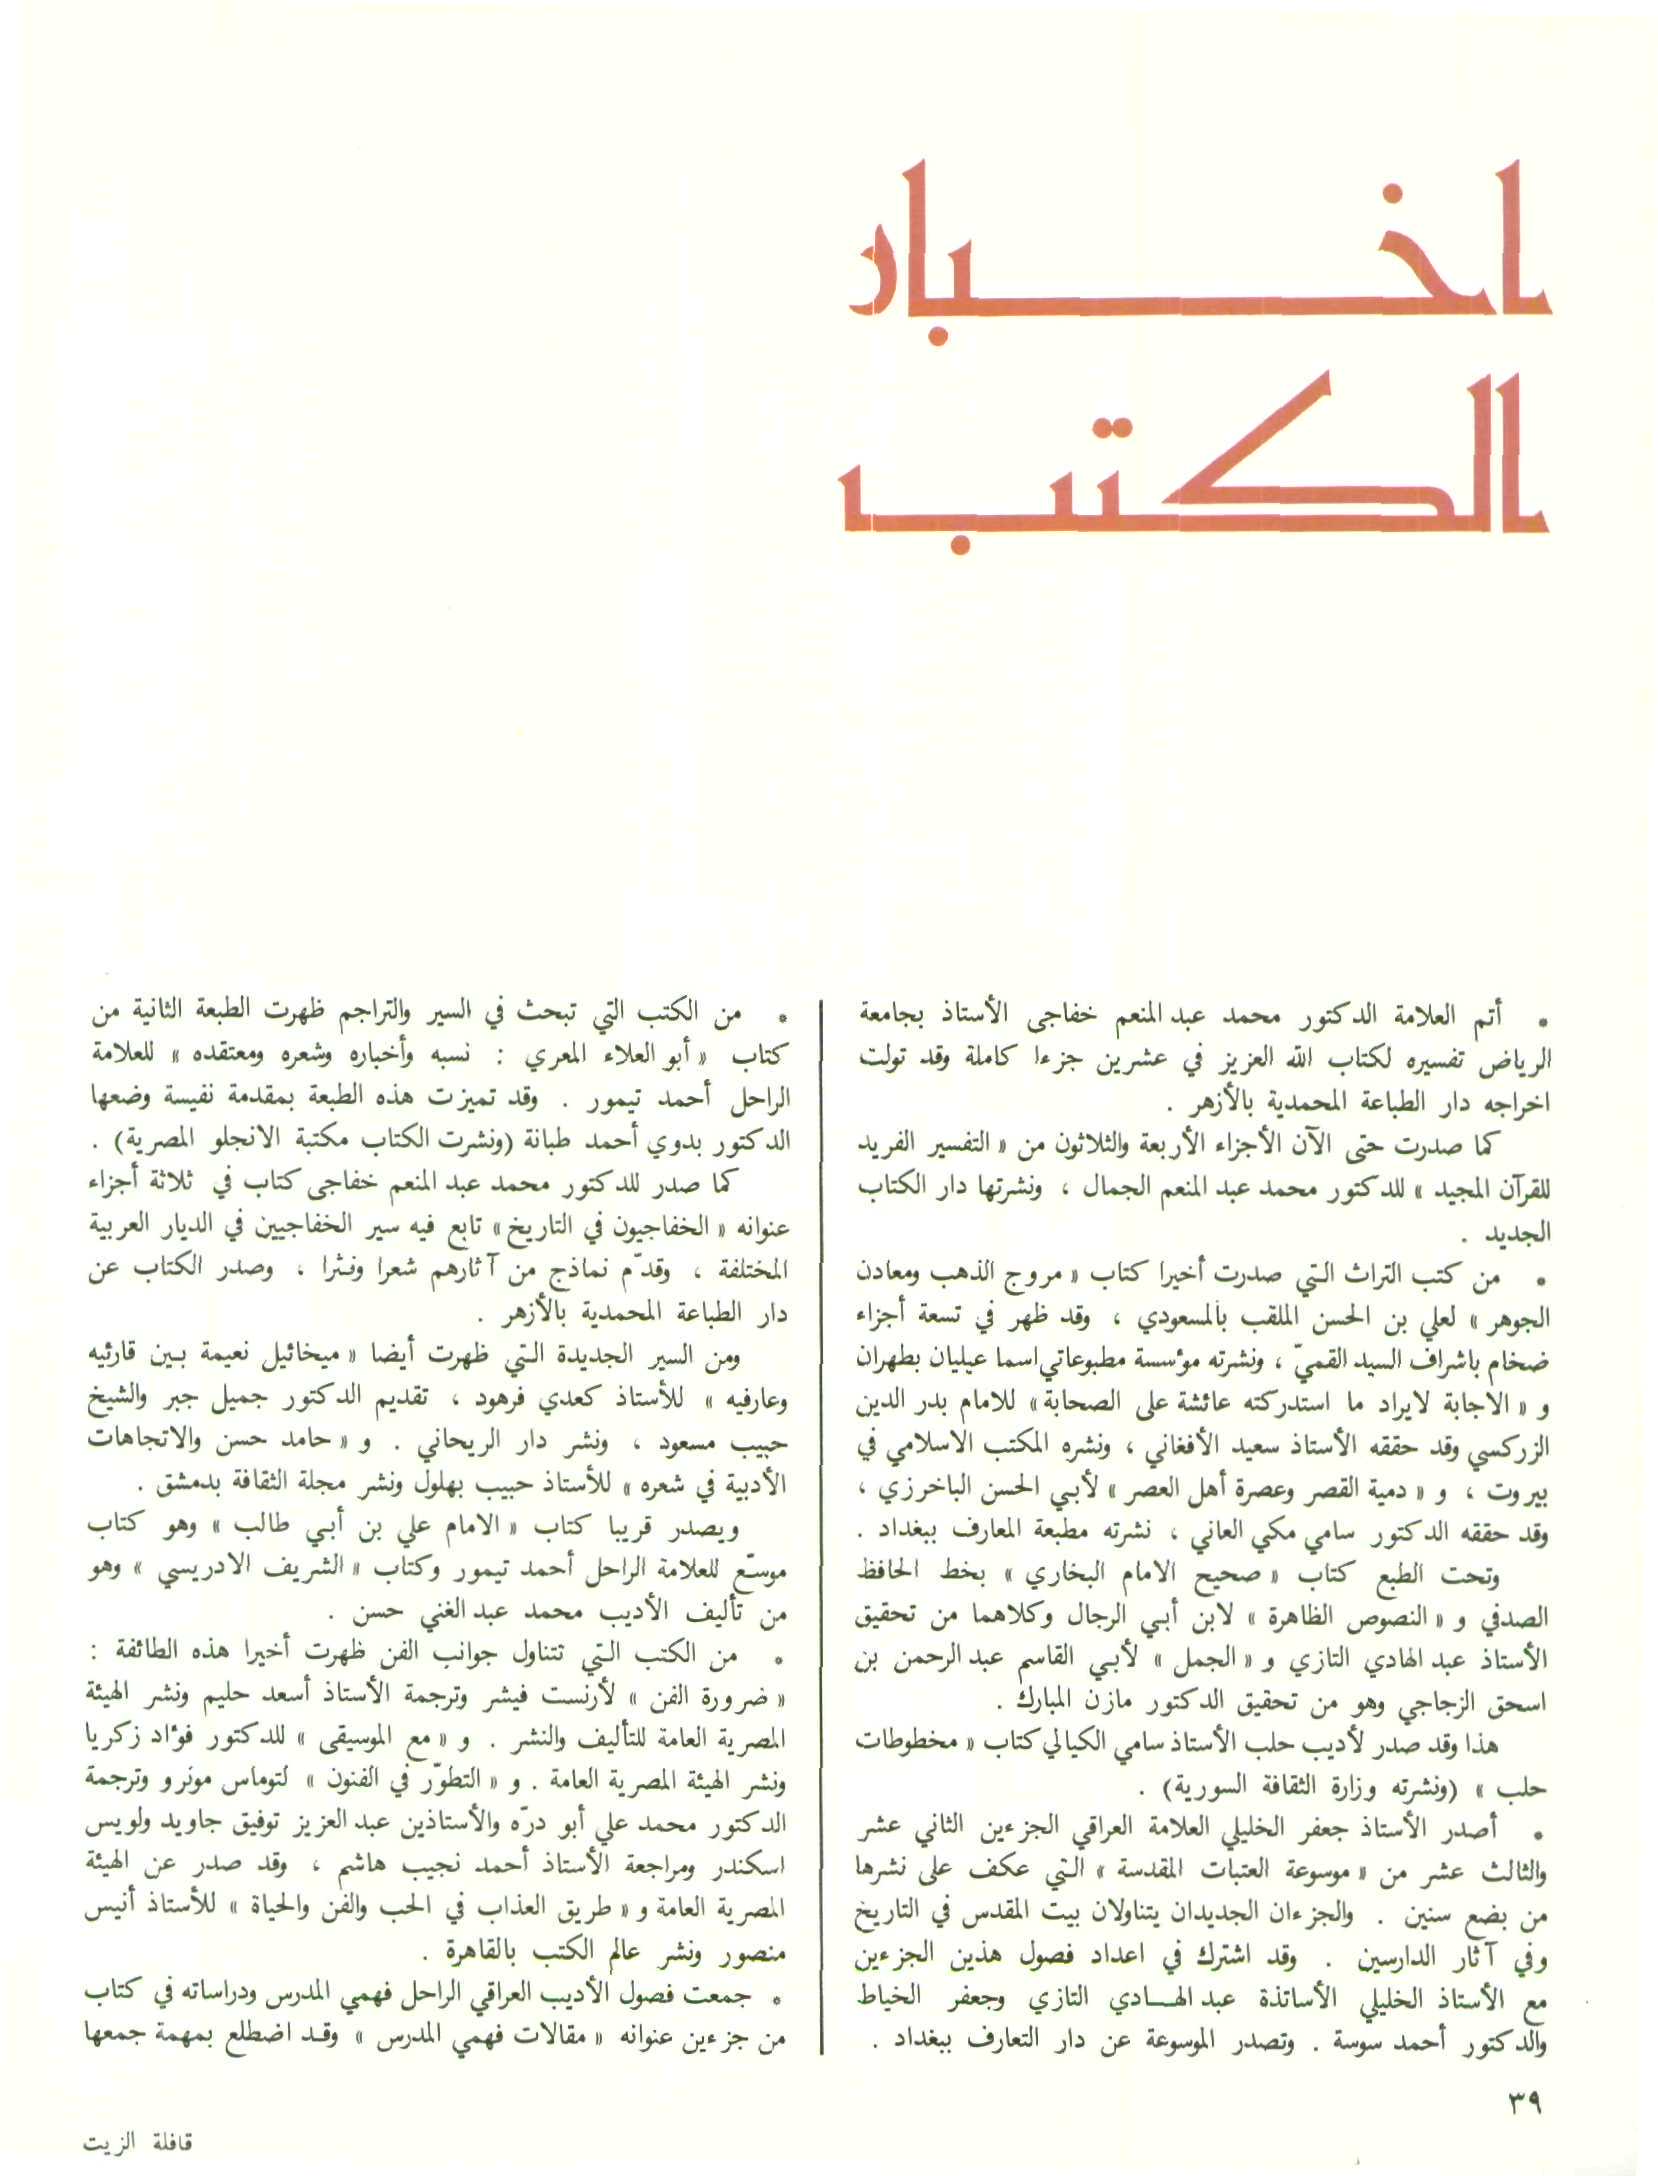 اخبار
الكتب
• أتم العلامة الدكتور محمد عبد المنعم خفاجى الأستاذ بجامعة
الرياض تفسيره لكتاب الله العزيز في عشرين جزءا كاملة وقد تولت
اخراجه دار الطباعة المحمدية بالأزهر .
كما صدرت حتى الآن الأجزاء الأربعة والثلاثون من « التفسير الفريد
للقرآن المجيد » للدكتور محمد عبد المنعم الجمال ، ونشرتها دار الكتاب
الجديد .
• من كتب التراث التي صدرت أخيرا كتاب « مروج الذهب ومعادن
الجوهر » لعلي بن الحسن الملقب بالمسعودي ، وقد ظهر في تسعة أجزاء
ضخام باشراف السيد القميّ ، ونشرته مؤسسة مطبوعاتي اسما عيليان بطهران
و « الاجابة لايراد ما استدركته عائشة على الصحابة » للامام بدر الدين
الزركسي وقد حققه الأستاذ سعيد الأفغاني ، ونشره المكتب الاسلامي في
بيروت ، و « دمية القصر وعصرة أهل العصر » لأبي الحسن الباخرزي ،
وقد حققه الدكتور سامي مكي العاني ، نشرته مطبعة المعارف ببغداد .
وتحت الطبع كتاب « صحيح الامام البخاري » بخط الحافظ
الصدفي و « النصوص الظاهرة » لابن أبي الرجال وكلاهما من تحقيق
الأستاذ عبد الهادي التازي و « الجمل » لأبي القاسم عبد الرحمن بن
اسحق الزجاجي وهو من تحقيق الدكتور مازن المبارك .
هذا وقد صدر لأديب حلب الأستاذ سامي الكيالي كتاب « مخطوطات
حلب » (ونشرته وزارة الثقافة السورية) .
• أصدر الأستاذ جعفر الخليلي العلامة العراقي الجزءين الثاني عشر
والثالث عشر من « موسوعة العتبات المقدسة » التي عكف على نشرها
من بضع سنين . والجزءان الجديدان يتناولان بيت المقدس في التاريخ
وفي آثار الدارسين . وقد اشترك في اعداد فصول هذين الجزءين
مع الأستاذ الخليلي الأساتذة عبد الهادي التازي وجعفر الخياط
والدكتور أحمد سوسة . وتصدر الموسوعة عن دار التعارف ببغداد .
• من الكتب التي تبحث في السير والتراجم ظهرت الطبعة الثانية من
كتاب « أبو العلاء المعري : نسبه وأخباره وشعره ومعتقده » للعلامة
الراحل أحمد تيمور . وقد تميزت هذه الطبعة بمقدمة نفيسة وضعها
الدكتور بدوي أحمد طبانة (ونشرت الكتاب مكتبة الانجلو المصرية) .
كما صدر للدكتور محمد عبد المنعم خفاجى كتاب في ثلاثة أجزاء
عنوانه « الخفاجيون في التاريخ » تابع فيه سير الخفاجيين في الديار العربية
المختلفة ، وقدّم نماذج من آثارهم شعرا ونثرا ، وصدر الكتاب عن
دار الطباعة المحمدية بالأزهر .
ومن السير الجديدة التي ظهرت أيضا « ميخائيل نعيمة بين قارئيه
وعارفيه » للأستاذ كعدي فرهود ، تقديم الدكتور جميل جبر والشيخ
حبيب مسعود ، ونشر دار الريحاني . و « حامد حسن والاتجاهات
الأدبية في شعره » للأستاذ حبيب بهلول ونشر مجلة الثقافة بدمشق .
ويصدر قريبا كتاب « الامام علي بن أبي طالب » وهو كتاب
موسّع للعلامة الراحل أحمد تيمور وكتاب « الشريف الادريسي » وهو
من تأليف الأديب محمد عبد الغني حسن .
• من الكتب التي تتناول جوانب الفن ظهرت أخيرا هذه الطائفة :
« ضرورة الفن » لأرنست فيشر وترجمة الأستاذ أسعد حليم ونشر الهيئة
المصرية العامة للتأليف والنشر . و « مع الموسيقى » للدكتور فؤاد زكريا
ونشر الهيئة المصرية العامة . و « التطوّر في الفنون » لتوماس مونرو وترجمة
الدكتور محمد علي أبو درّه والأستاذين عبد العزيز توفيق جاويد ولويس
اسكندر ومراجعة الأستاذ أحمد نجيب هاشم ، وقد صدر عن الهيئة
المصرية العامة و « طريق العذاب في الحب والفن والحياة » للأستاذ أنيس
منصور ونشر عالم الكتب بالقاهرة .
• جمعت فصول الأديب العراقي الراحل فهمي المدرس ودراساته في كتاب
من جزءين عنوانه « مقالات فهمي المدرس » وقد اضطلع بمهمة جمعها
٣٩
قافلة الزيت